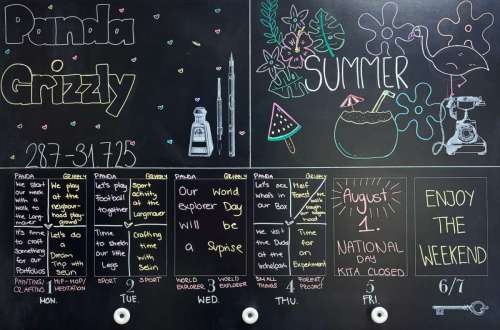 Panda
Grizzly
287-31725
SUMMER
PANDA
GRIZZLY
We start
our week
with a
walk to
the Long
mauer
We play
at the
neighbor-
hood play-
ground
It's time
to craft
Something
for our
Portfolios
Let's do
a
Dream
Trip with
Selin
PAINTING/
CRAFTING
1
HIP-HOP/
MEDITATION
MON.
PANDA
GRIZZLY
Let's play
Football
together
Sport
activity
at the
Langmauer
Time
to stretch
our little
Legs
Crafting
time
with
Selin
SPORT
2
SPORT
TUE.
Our World
explorer Day
will be
a Suprise
WORLD
EXPLORER
3
WORLD
EXPLORER
WED.
PANDA
GRIZZLY
Let's see
what's in
our Box
Half
Forest
We
visit the
Dudes at
the
Time
for
an
Experiment
SIZE
4
PARENT/
PROJECT
THU.
August
1.
NATIONAL
DAY
KITA CLOSED
5
FRI.
ENJOY
THE
WEEKEND
6/7